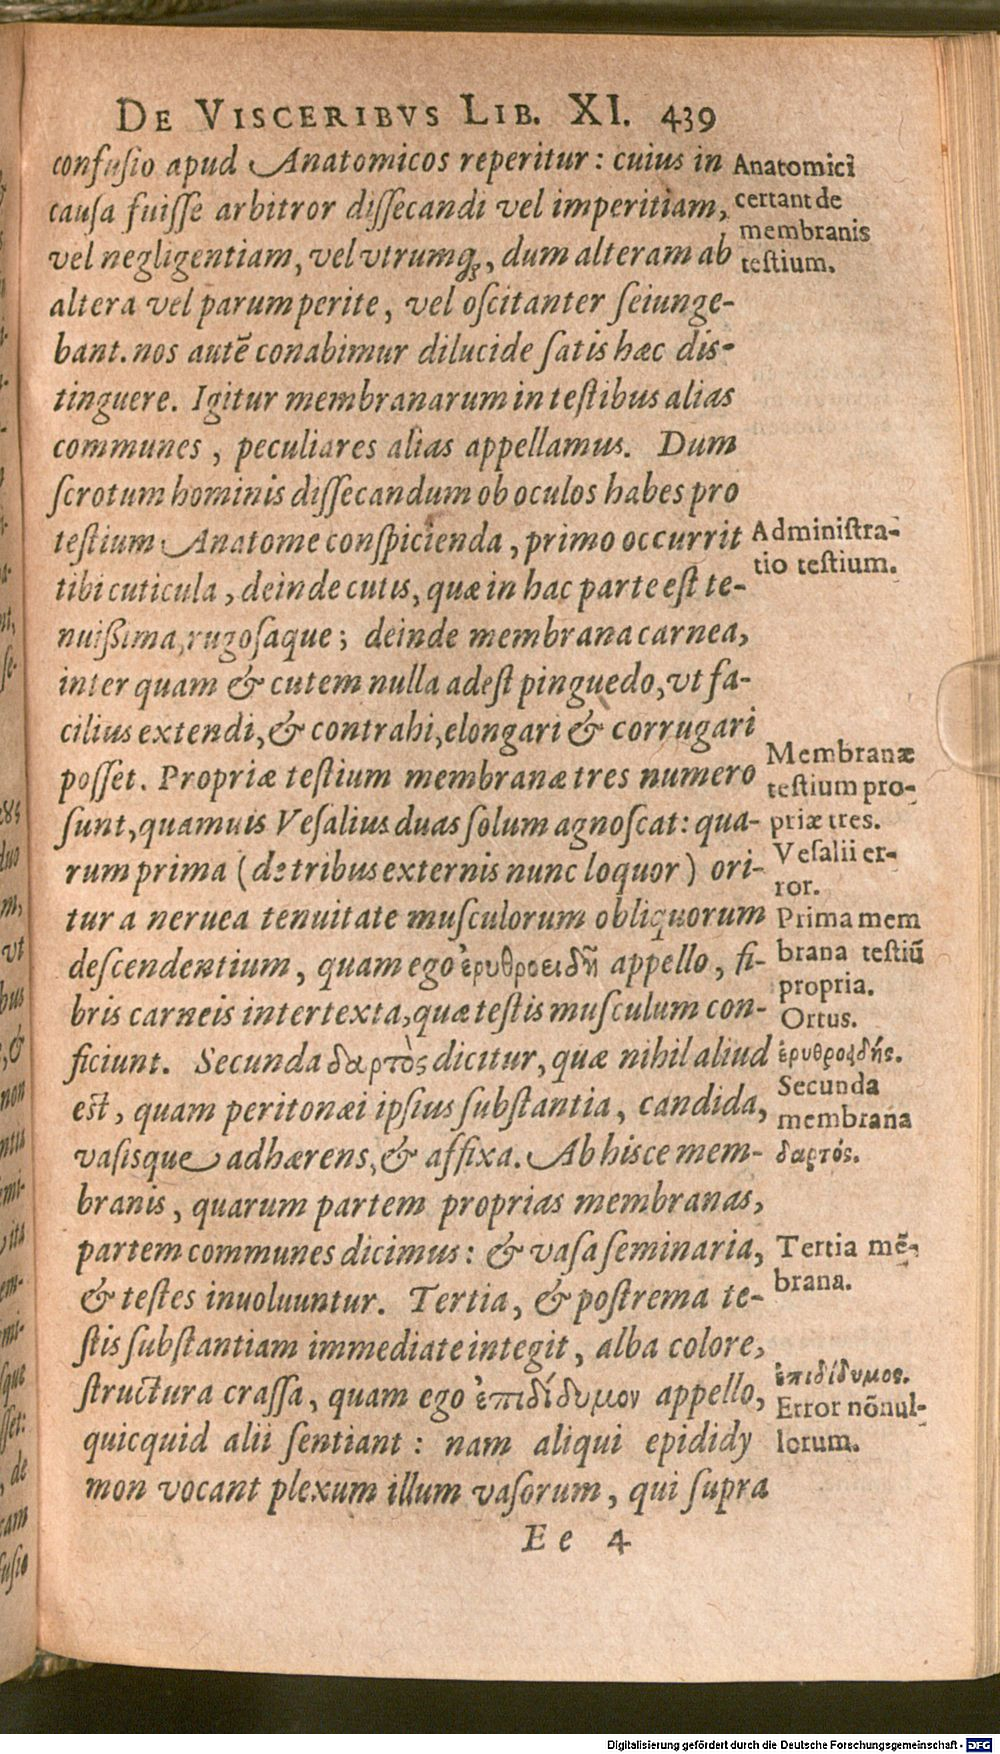 DE VISCERIBVS LIB. XI. 439
confusio apud Anatomicos reperitur: cuius in
causa fuisse arbitror dissecandi vel imperitiam,
vel negligentiam, vel vtrumq;, dum alteram ab
altera vel parum perite, vel oscitanter seiunge-
bant. nos autē conabimur dilucide satis hæc dis-
tinguere. Igitur membranarum in testibus alias
communes, peculiares alias appellamus. Dum
scrotum hominis dissecandum ob oculos habes pro
testium Anatome conspicienda, primo occurrit
tibi cuticula, deinde cutis, quæ in hac parte est te-
nuißima, rugosaque; deinde membrana carnea,
inter quam & cutem nulla adest pinguedo, vt fa-
cilius extendi, & contrahi, elongari & corrugari
posset. Propriæ testium membranæ tres numero
sunt, quamuis Vesalius duas solum agnoscat: qua-
rum prima (de tribus externis nunc loquor) ori-
tur a neruea tenuitate musculorum obliquorum
descendentium, quam ego ἐρυθροειδῆ appello, fi-
bris carneis intertexta, quæ testis musculum con-
ficiunt. Secunda δαρτὸς dicitur, quæ nihil aliud
est, quam peritonæi ipsius substantia, candida,
vasisque adhærens, & affixa. Ab hisce mem-
branis, quarum partem proprias membranas,
partem communes dicimus: & vasa seminaria,
& testes inuoluuntur. Tertia, & postrema te-
stis substantiam immediate integit, alba colore,
structura crassa, quam ego ἐπιδίδυμον appello,
quicquid alii sentiant: nam aliqui epididy
mon vocant plexum illum vasorum, qui supra
Ee 4
Anatomici
certant de
membranis
testium.
Administra-
tio testium.
Membranæ
testium pro-
priæ tres.
Vesalii er-
ror.
Prima mem
brana testiū
propria.
Ortus.
ἐρυθροειδής.
Secunda
membrana
δαρτός.
Tertia mē-
brana.
ἐπιδίδυμος.
Error nōnul-
lorum.
Digitalisierung gefördert durch die Deutsche Forschungsgemeinschaft - DFG